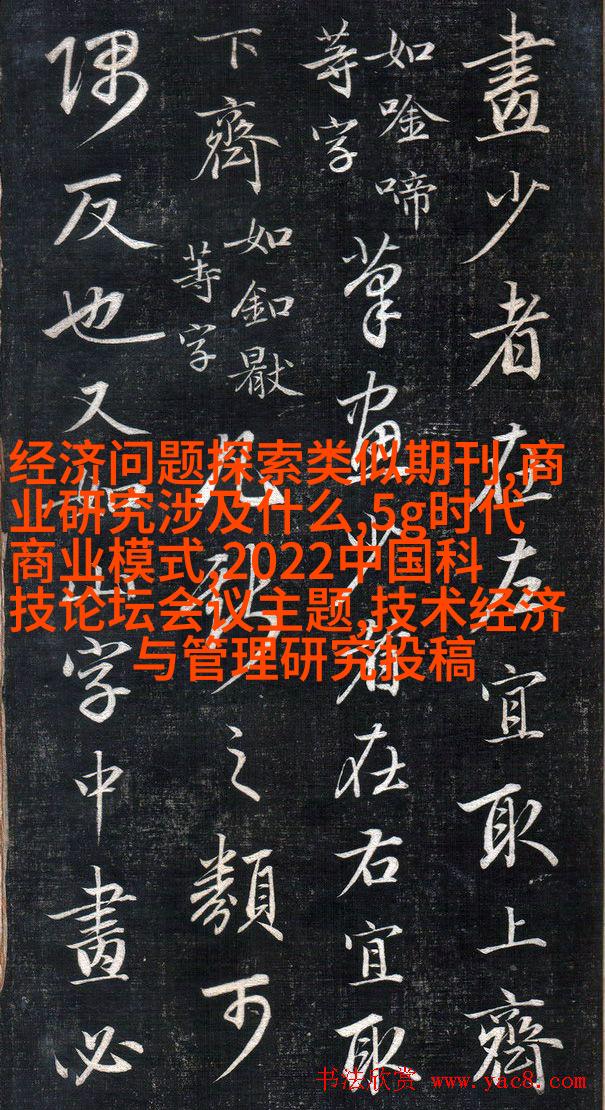 畫少者在左宜取上齊
如唫啼
等字
筆畫少者在右宜取
下齊
如釦
等字
凡之類可
隅反也又如字中畫必
经济问题探索类似期刊,商
业研究涉及什么,5g时代
商业模式,2022中国科
技论坛会议主题,技术经济
与管理研究投稿
书法欣赏 www.yac8.com